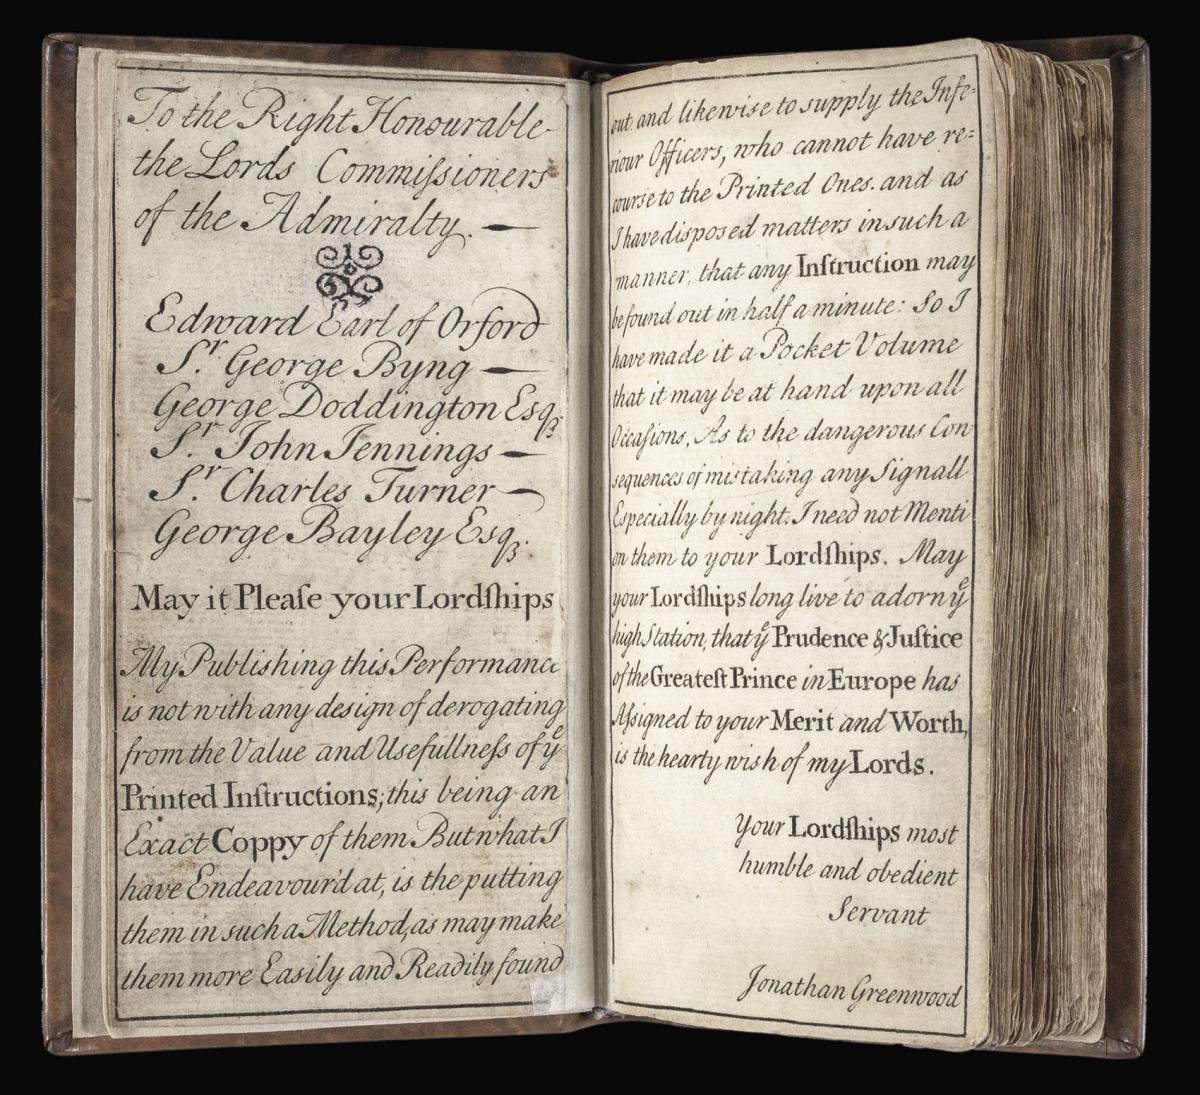 To the Right Honourable
the Lords Commiſsioners
of the Admiralty. —
Edward Earl of Orford
Sr. George Byng —
George Doddington Esqr.
Sr. John Jennings —
Sr. Charles Turner —
George Bayley Esqr.
May it Pleaſe your Lordſhips
My Publishing this Performance
is not with any design of derogating
from the Value and Usefullneſs of ye
Printed Inſtructions; this being an
Exact Coppy of them But what I
have Endeavour'd at, is the putting
them in such a Method, as may make
them more Easily and Readily found
out. and likewise to supply the Infe=
riour Officers, who cannot have re=
course to the Printed Ones. and as
I have disposed matters in such a
manner, that any Inſtruction may
be found out in half a minute: So I
have made it a Pocket Volume
that it may be at hand upon all
Occaſions. As to the dangerous Con-
sequences of mistaking any Signall
Especially by night. I need not Menti
on them to your Lordſhips. May
your Lordſhips long live to adorn ye
high Station, that ye Prudence & Juſtice
of the Greateſt Prince in Europe has
Aſsigned to your Merit and Worth,
is the hearty wish of my Lords.
Your Lordſhips most
humble and obedient
Servant
Jonathan Greenwood